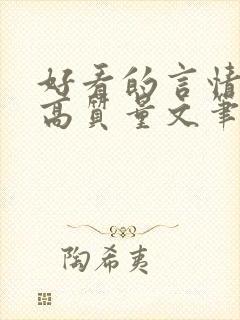 好看的言情
高質量文筆
陶希夷